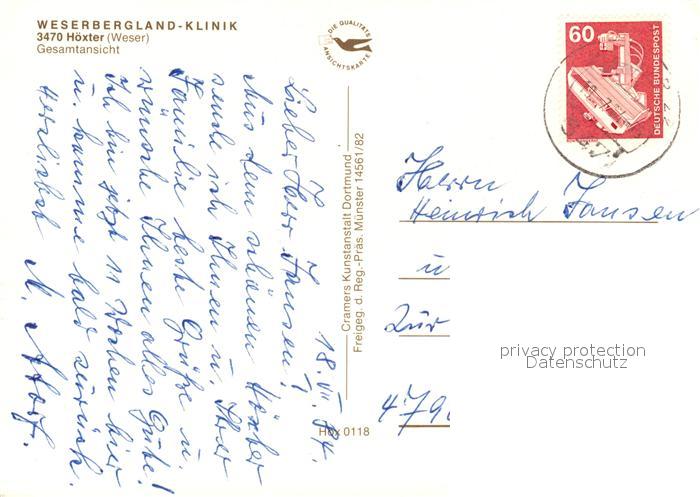 WESERBERGLAND-KLINIK
3470 Höxter (Weser)
Gesamtansicht
DIE QUALITÄTS
ANSICHTSKARTE
60
DEUTSCHE BUNDESPOST
18. VII. 84.
Lieber Herr Jansen,
Aus dem schönen Höxter
sende ich Ihnen u. Ihrer
Familie beste Grüße u.
wünsche Ihnen alles Gute!
Ich bin jetzt 11 Wochen hier
u. komme bald zurück.
Herzlichst
Cramers Kunstanstalt Dortmund
Freigeg. d. Reg.-Präs. Münster 14561/82
Höx 0118
Herrn
Heinrich Jansen
u
Zur
479
privacy protection
Datenschutz